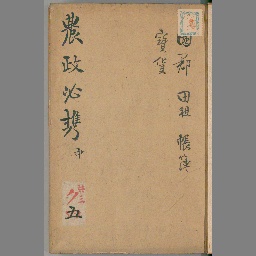 國郡 田租 帳簿
寶貨
農政必携 中
五